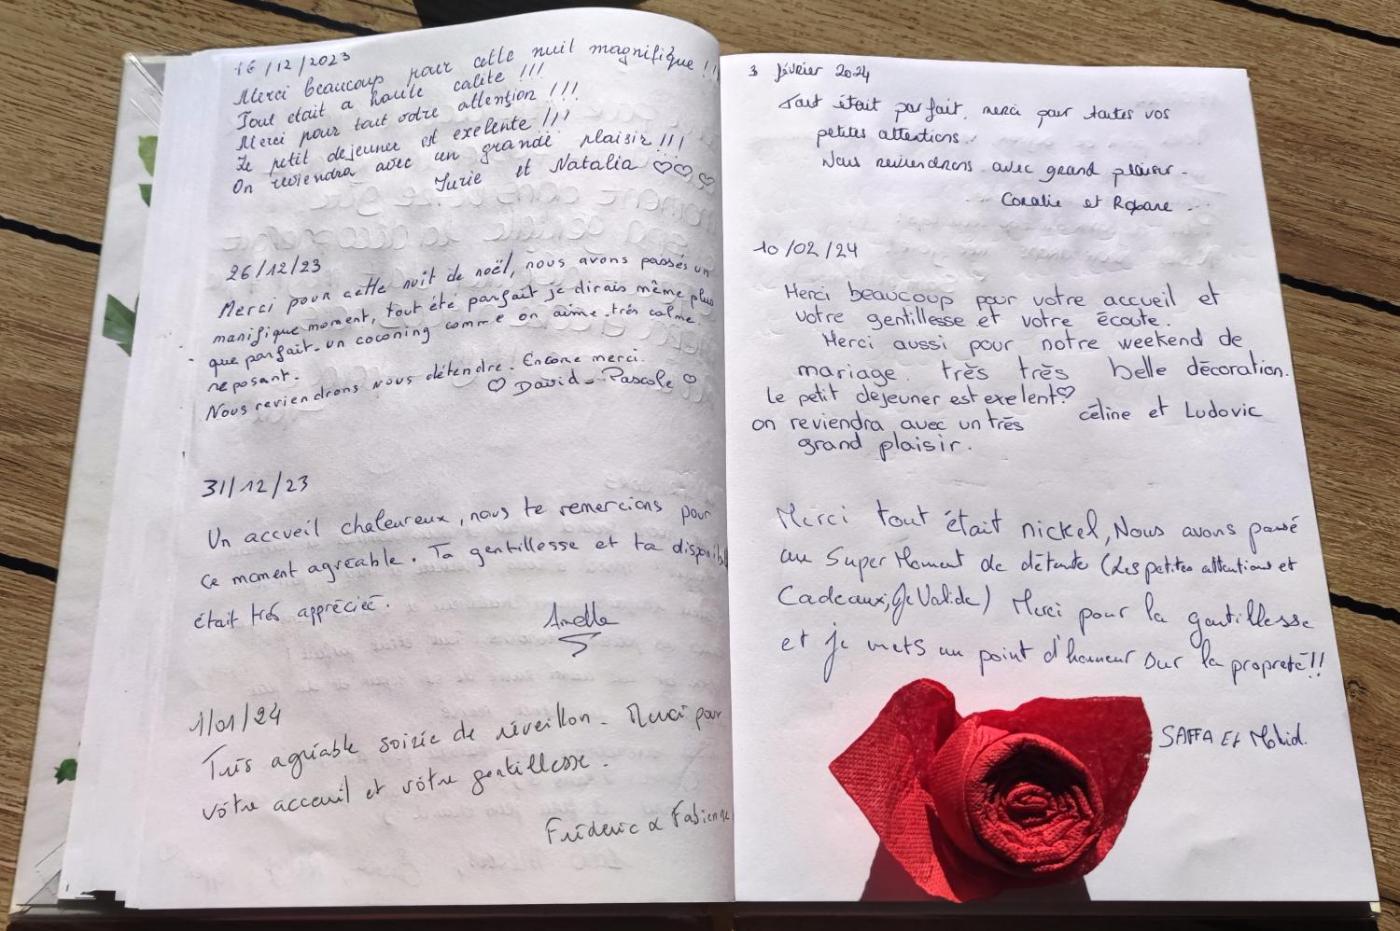 16/12/2023
Merci beaucoup pour cette nuit magnifique !!
Tout etait a haute calite !!!
Merci pour tout votre attention !!!
Le petit dejeuner est exelente !!!
On reviendra avec un grande plaisir !!!
Yurie et Natalia ♡♡♡
26/12/23
Merci pour cette nuit de noël, nous avons passés un
manifique moment, tout été parfait je dirais même plus
que parfait - un coconing comme on aime - très calme
reposant.
Nous reviendrons nous détendre. Encore merci.
♡ David - Pascale ♡
31/12/23
Un accueil chaleureux, nous te remercions pour
ce moment agréable. Ta gentillesse et ta disponibil
était très appréciée.
1/01/24
Très agréable soirée de réveillon. Merci pour
votre acceuil et vôtre gentillesse.
Frédéric & Fabienne
3 février 2024
Tout était parfait, merci pour toutes vos
petites attentions.
Nous reviendrons avec grand plaisir.
Coralie et
10/02/24
Merci beaucoup pour votre accueil et
votre gentillesse et votre écoute.
Merci aussi pour notre weekend de
mariage. très très belle décoration.
Le petit dejeuner est exelent ♡
on reviendra avec un très
grand plaisir.
céline et Ludovic
Merci tout était nickel, Nous avons passé
un Super Moment de détente (Les petites attentions et
Cadeaux, Je Valide) Merci pour la gentillesse
et je mets un point d'honneur sur la propreté!!
SAFFA Et